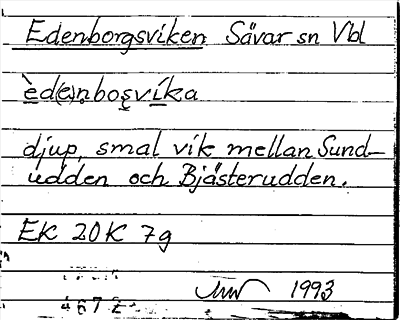 Edenborgsviken Sävar sn Vbl
èd(e)ṇbos̨víka
djup, smal vik mellan Sund-
udden och Bjästerudden.
EK 20K 7g
1993
4672